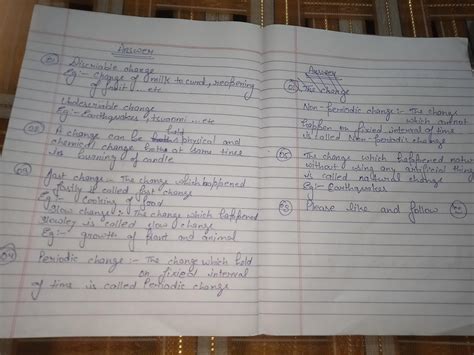 Answer
Discriable change
Eg:- Change of milk to curd, reopening
of fruit ... etc
Undescriable change
Eg:- Earthquakes, tsunami ... etc
A change can be held physical and
chemical change both at same times
is burning of candle
Fast change - The change which happened
fastly is called fast change
Eg:- Cooking of food
Slow changes:- The change which happened
slowley is called slow change
Eg:- growth of plant and animal
04 Periodic change:- The change which held
on fixed interval
of time is called Periodic change
Answer
The change
Non-periodic change:- The change
which cannot
happen on fixed interval of time
is called Non-periodic change
05 The change which happened
without using any artificial thing
is called natural change
Eg:- Earthquakes
Please like and follow